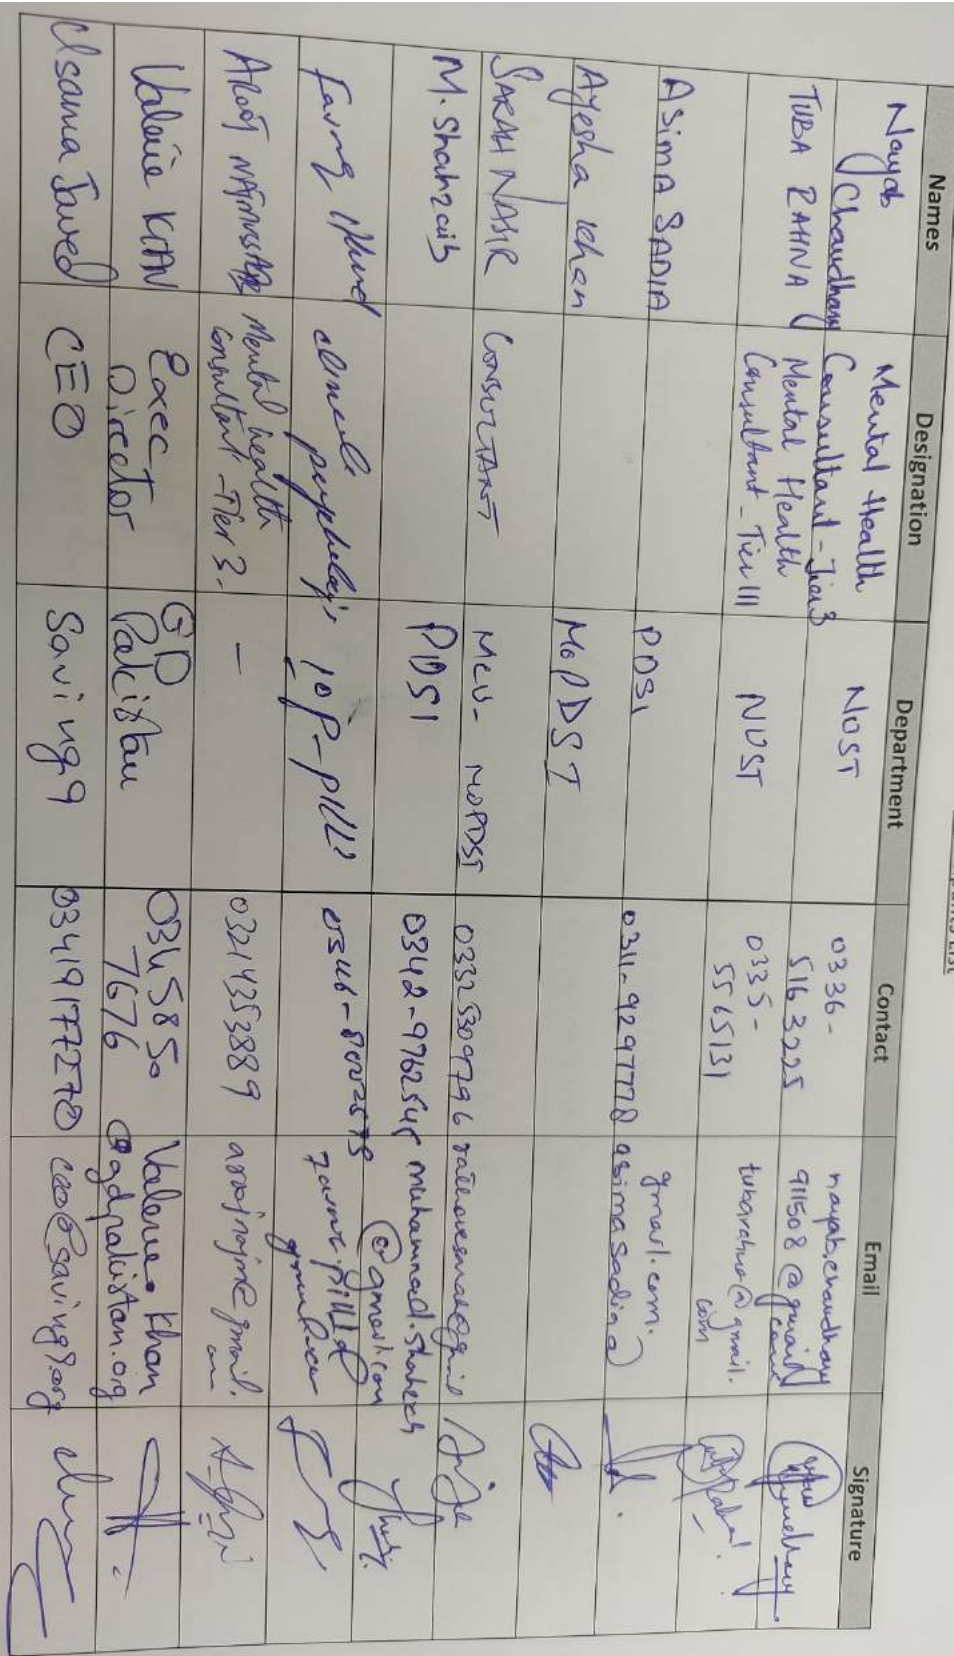 Names Designation Department Contact Email Signature
Nayab Chaudhary Mental Health Consultant - Tier 3 NUST 0336- 5163225 nayab.chaudhary 911508@gmail.com
TUBA RAHNA Mental Health Consultant - Tier III NUST 0335- 5565131 tubarahna@gmail.com
ASimA SADIA PDSI 0311-9297778 asimasadia@gmail.com.
Ayesha Khan MoPDSI
SARAH NASIR CONSULTANT MCU- MOPDSI 03325309796
M. Shahzaib PDSI 0342-9762545 muhammad.shahzaib @gmail.com
clinical 10P-
Mental health consultant - Tier 3. - 03214353889 gmail.
Valerie KHAN Exec Director GD Pakistan 0345850 7676 Valerie.Khan @gdpakistan.org
Usama Javed CEO Saving9 03419177270 ceo@saving9.org